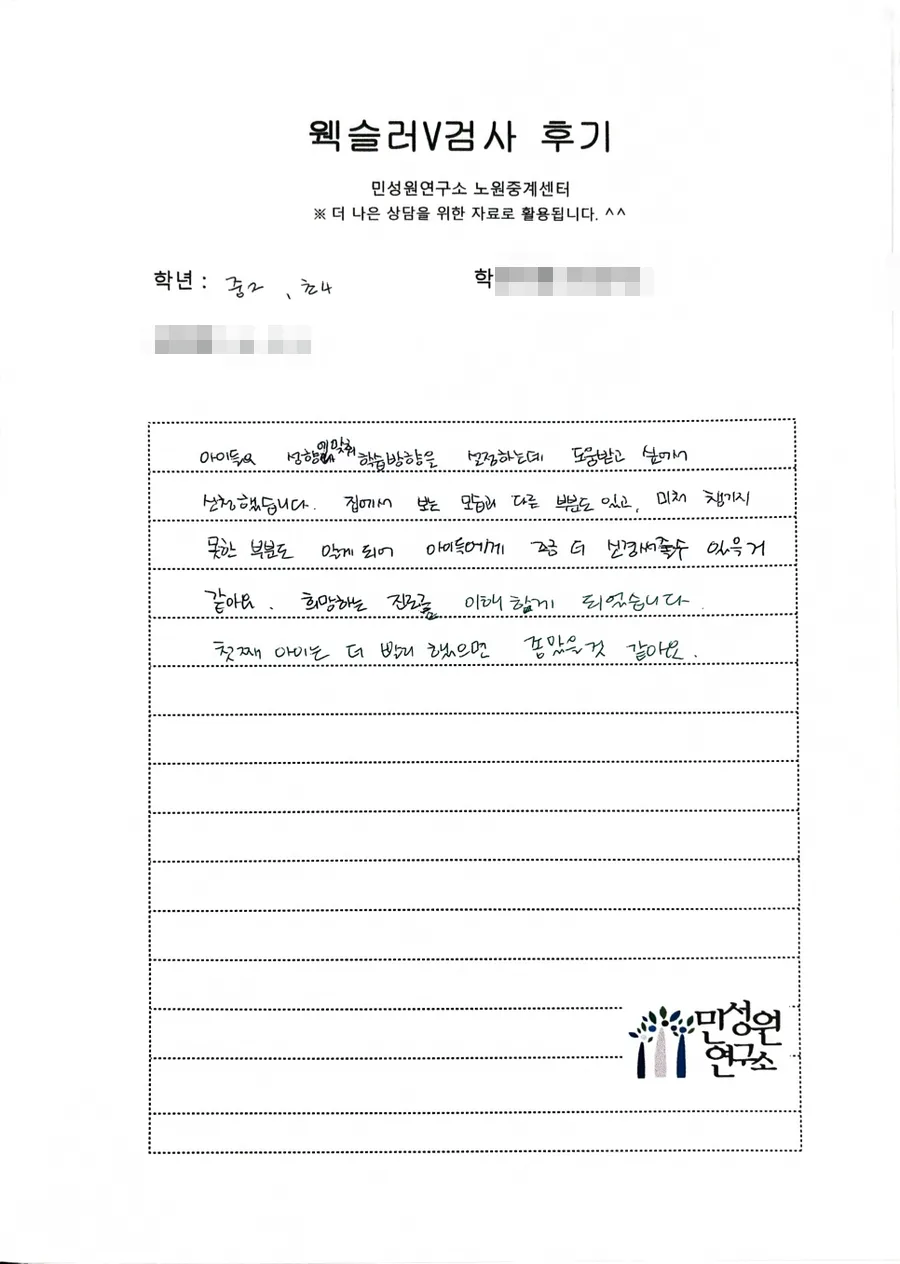 웩슬러V검사 후기
민성원연구소 노원중계센터
※ 더 나은 상담을 위한 자료로 활용됩니다. ^^
학년 : 중2 , 초4
학
아이들의 성향에 맞춰 학습방향을 설정하는데 도움받고 싶어서
신청했습니다. 집에서 보는 모습과 다른 부분도 있고, 미처 챙기지
못한 부분도 알게 되어 아이들에게 조금 더 신경써줄수 있을거
같아요. 희망하는 진로를 이해할게 되었습니다.
첫째 아이는 더 빨리 했으면 좋았을것 같아요.
민성원
연구소